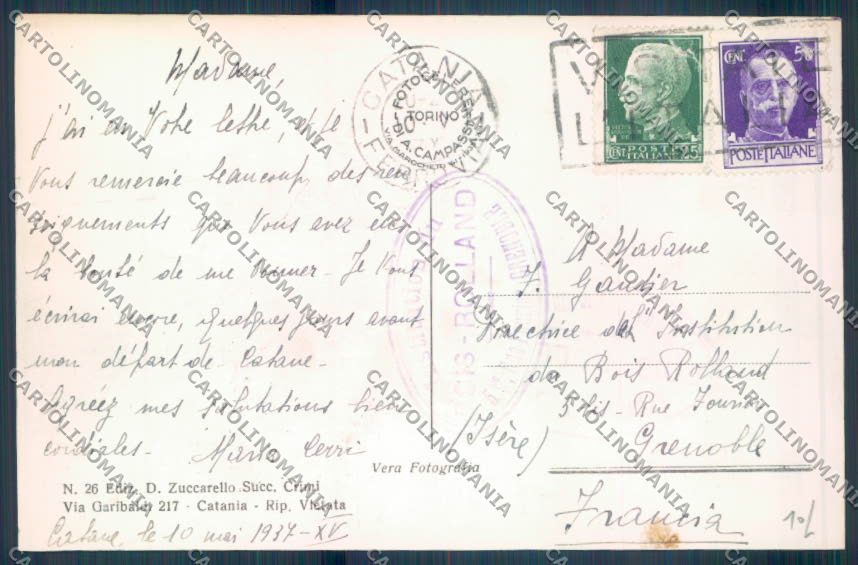 Madame,
j'ai eu Votre lettre, et je
Vous remercie beaucoup des ren
seignements que Vous avez eu
la bonté de me donner - Je Vous
écrirai encore, quelques jours avant
mon départ de Catane -
Agréez mes salutations bien
cordiales - Maria Cerri
N. 26 Ediz. D. Zuccarello Succ. Crimi
Via Garibaldi 217 - Catania - Rip. Vietata
Catane, le 10 mai 1937-XV
Vera Fotografia
CATANIA
FERROVIA
FOTOCELERE
TORINO
DI A. CAMPASSI
CENT 25
POSTE ITALIANE
CENT 50
POSTE ITALIANE
BOIS-ROLLAND
A Madame
J. Gautier
Directrice de l'Institution
du Bois Rolland
5 bis - Rue
Grenoble
(Isère)
Francia
10/
CARTOLINOMANIA